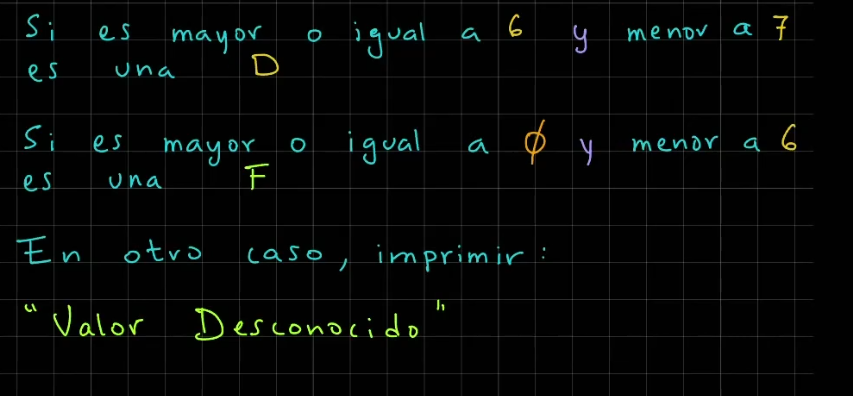 Si es mayor o igual a 6 y menor a 7
es una D
Si es mayor o igual a 0 y menor a 6
es una F
En otro caso, imprimir:
"Valor Desconocido"